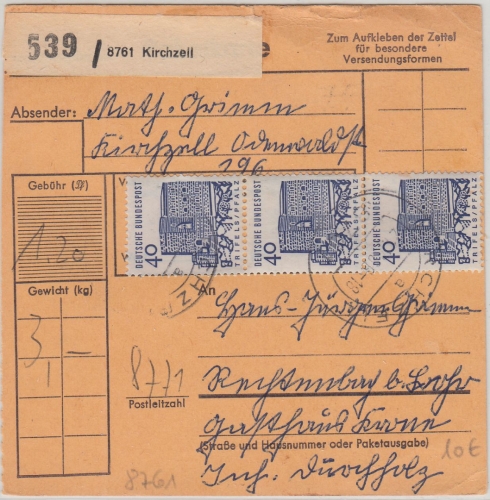 539 / 8761 Kirchzell
Zum Aufkleben der Zettel
für besondere
Versendungsformen
Absender: Math. Grimm
Kirchzell Odenwaldstr
196
Gebühr (₰)
1,20
DEUTSCHE BUNDESPOST
40
TRIFELS/PFALZ
DEUTSCHE BUNDESPOST
40
TRIFELS/PFALZ
DEUTSCHE BUNDESPOST
40
TRIFELS/PFALZ
Gewicht (kg)
3,—
An
Hans-Jürgen Grimm
8771
Rechtenbach b. Lohr
Postleitzahl
Gasthaus Krone
(Straße und Hausnummer oder Paketausgabe)
10€
8761
Inh. Durchholz